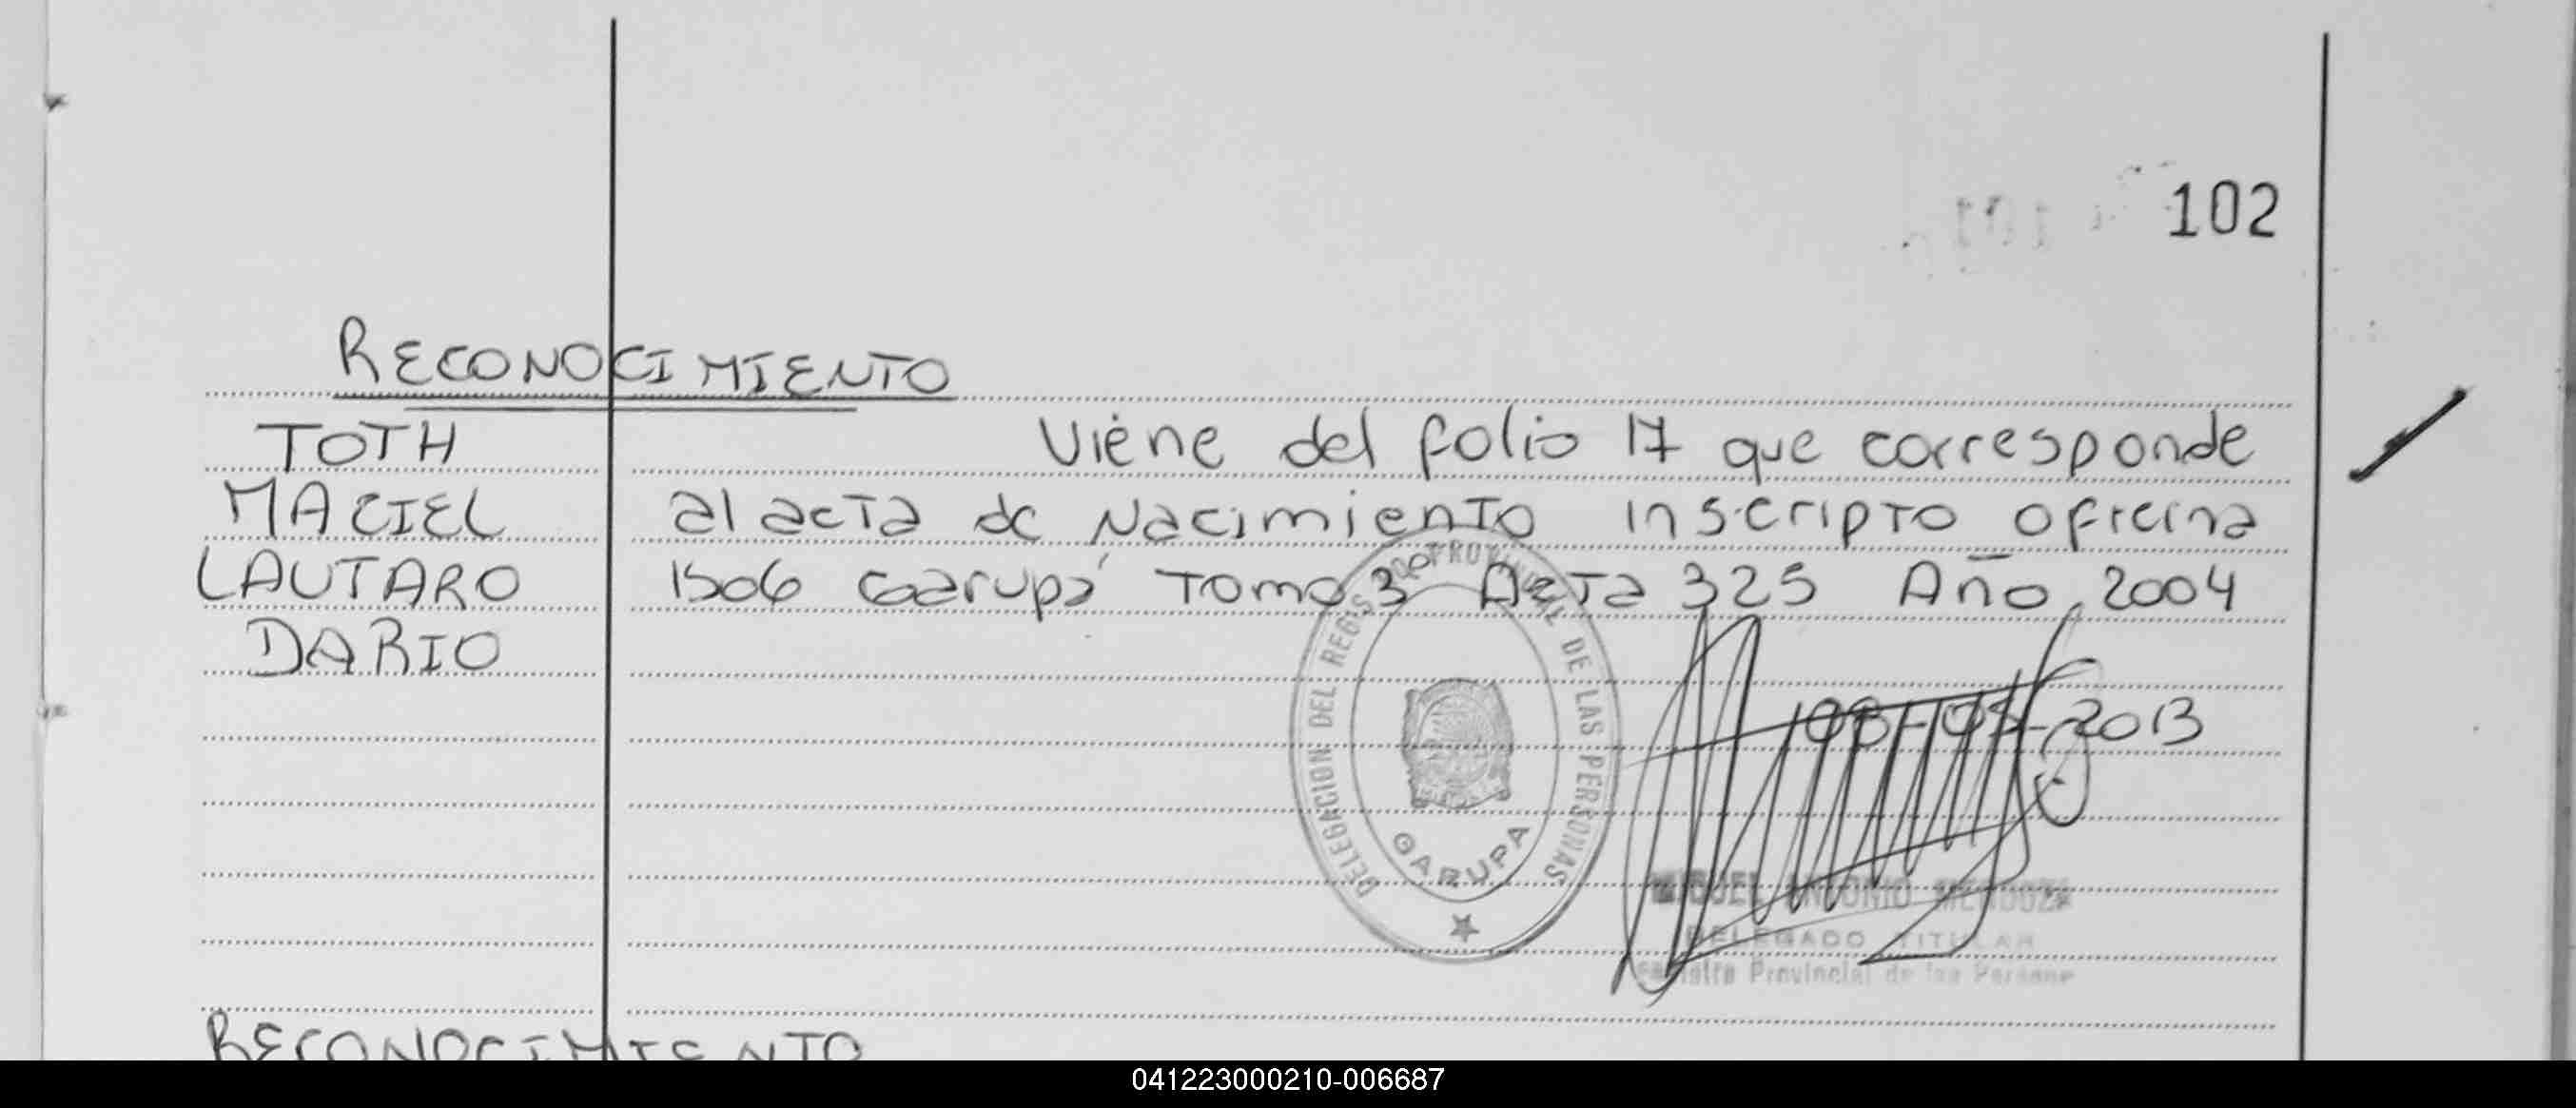 102
RECONOCIMIENTO
TOTH
MACIEL
LAUTARO
DARIO
Viene del folio 17 que corresponde
al acta de Nacimiento inscripto oficina
1506 Garupá Tomo 3º Acta 325 Año 2004
2013
DELEGACION DEL REGISTRO PROVINCIAL DE LAS PERSONAS
GARUPA
MIGUEL ANTONIO MENDOZA
DELEGADO TITULAR
Provincial de las Persona
RECONOCIMIENTO
041223000210-006687